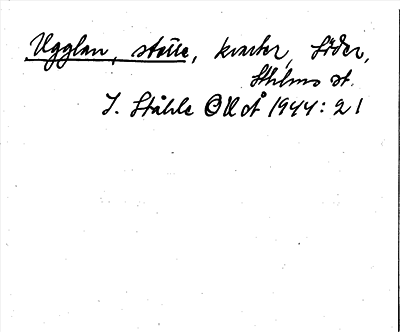 Ugglan, större, kvarter, Söder,
Sthlms st.
I. Ståhle OUoÅ 1944: 21